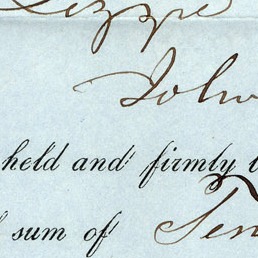 Lizzie
John
held and firmly
sum of Ten